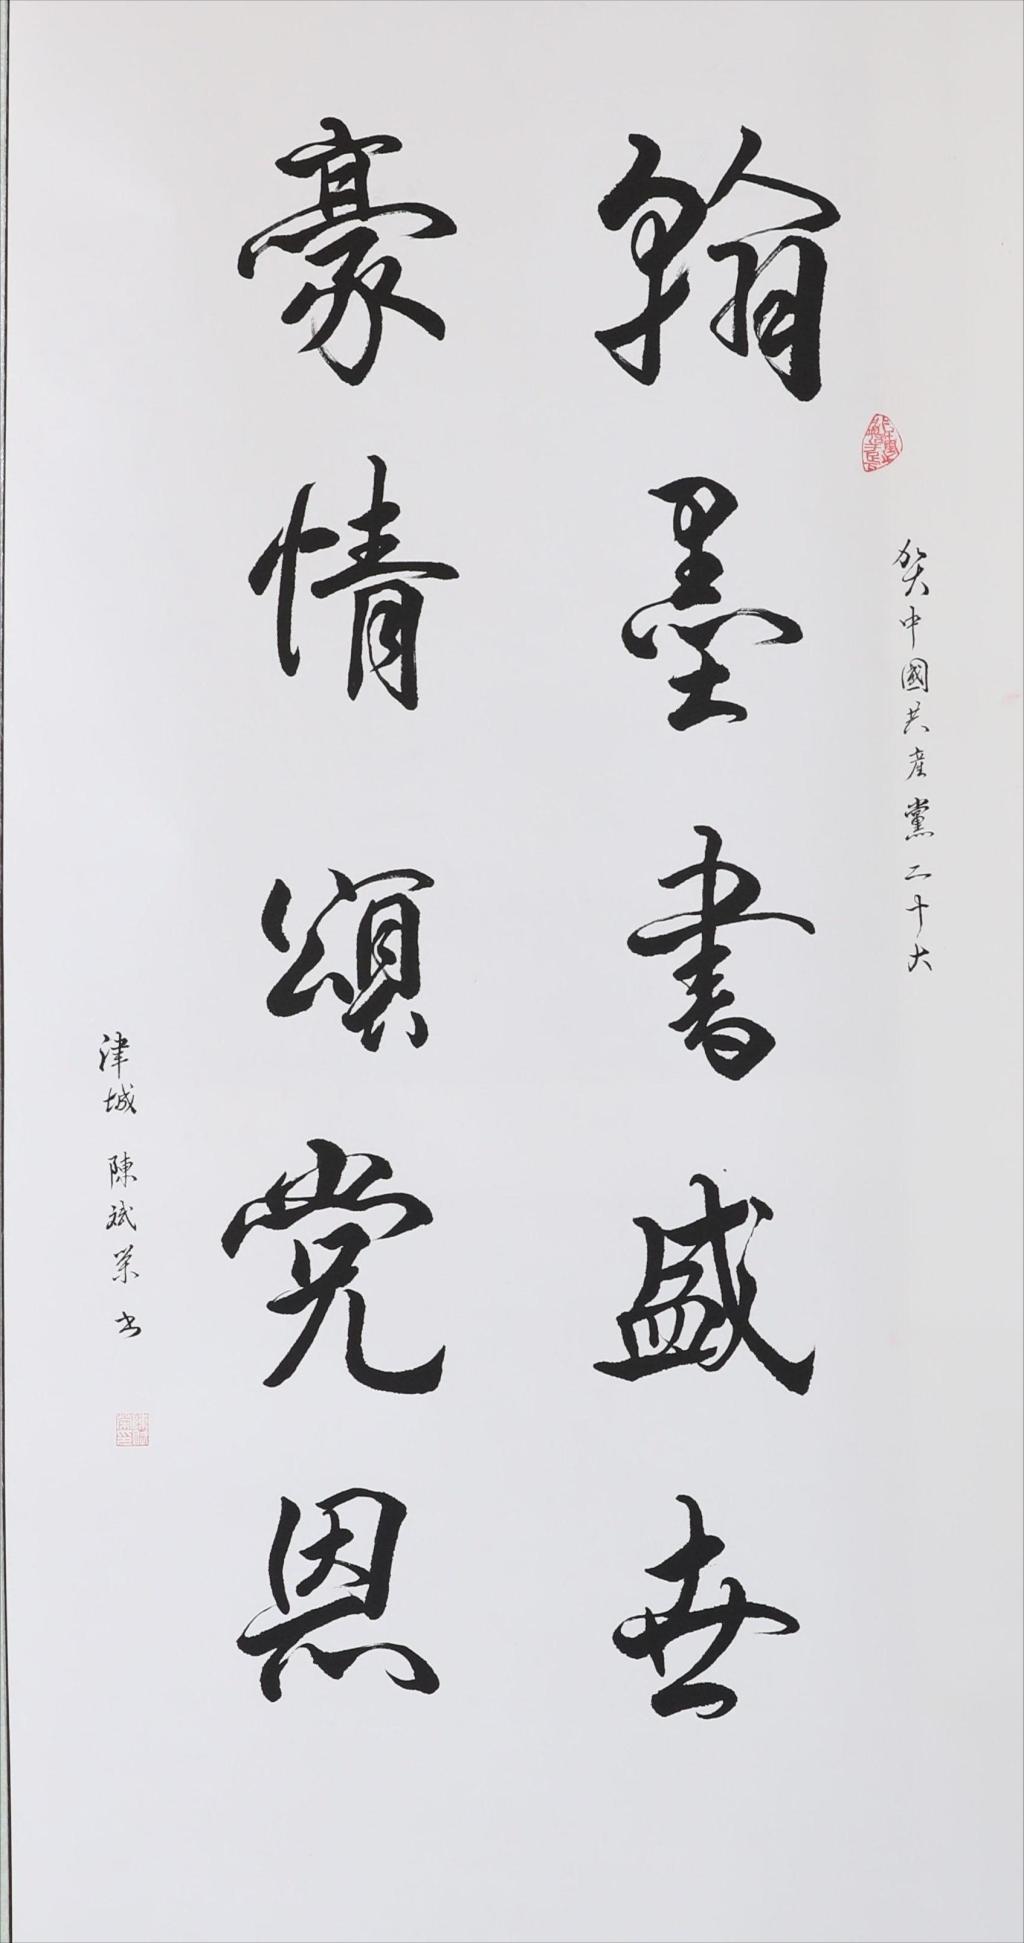 贺中國共產黨二十大
翰墨書盛世
豪情頌党恩
津城 陳斌榮书